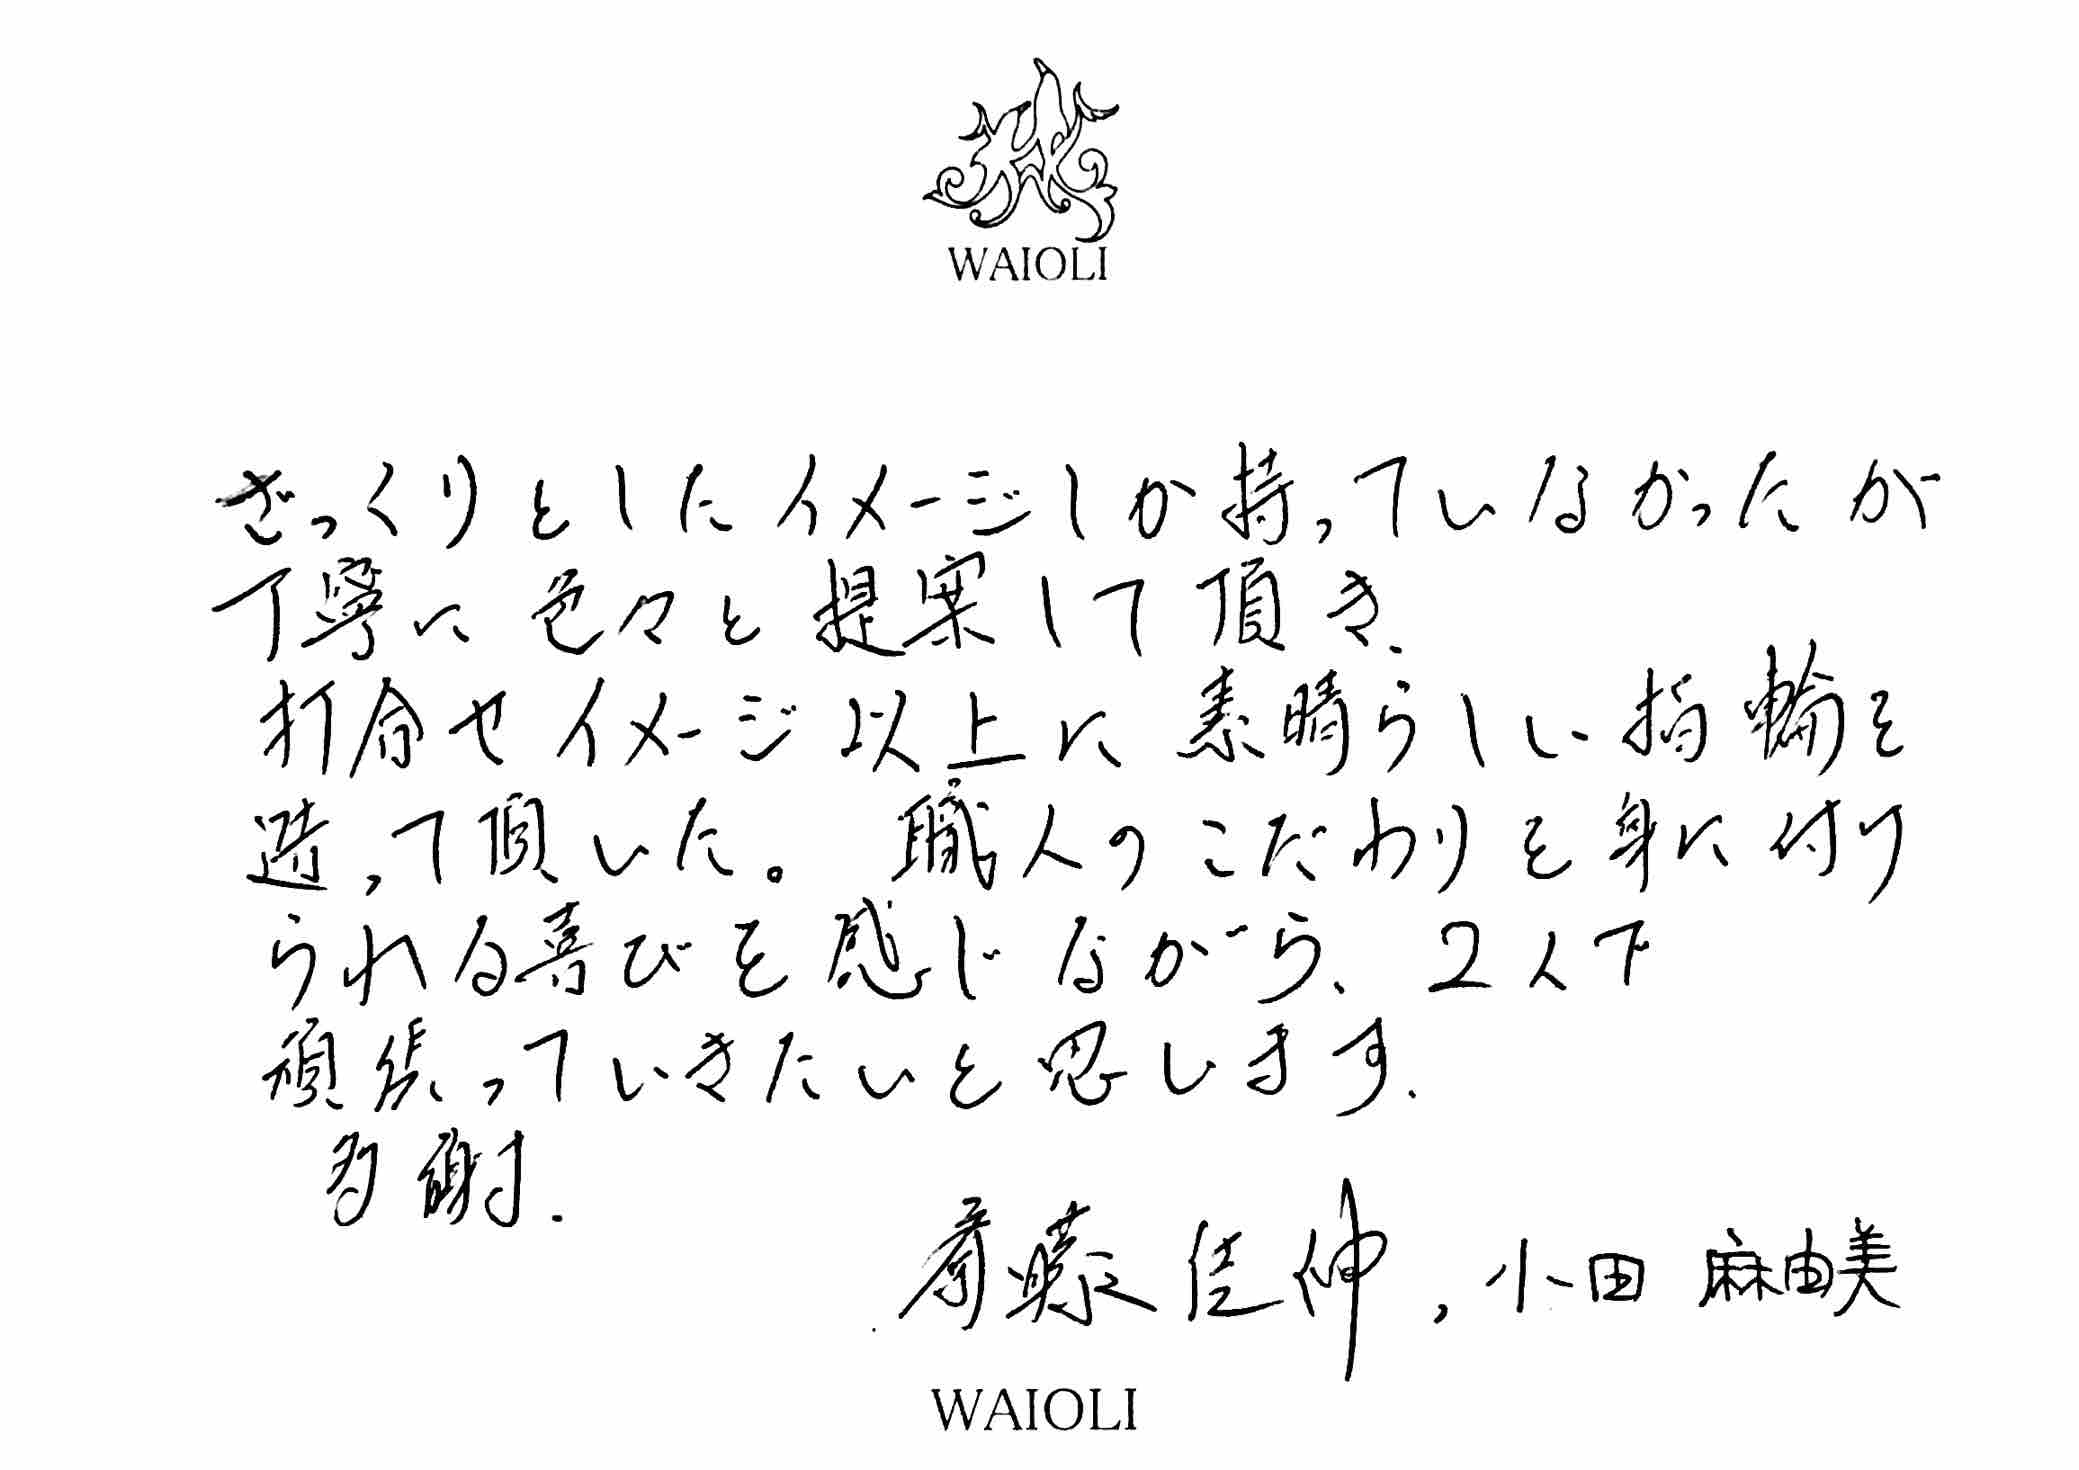 WAIOLI
ざっくりとしたイメージしか持っていなかったが
丁寧に色々と提案して頂き、
打合せイメージ以上に素晴らしい指輪を
造って頂いた。職人のこだわりを身に付け
られる喜びを感じながら、2人で
頑張っていきたいと思します.
多謝.
斎藤 佳伸,小田 麻由美
WAIOLI